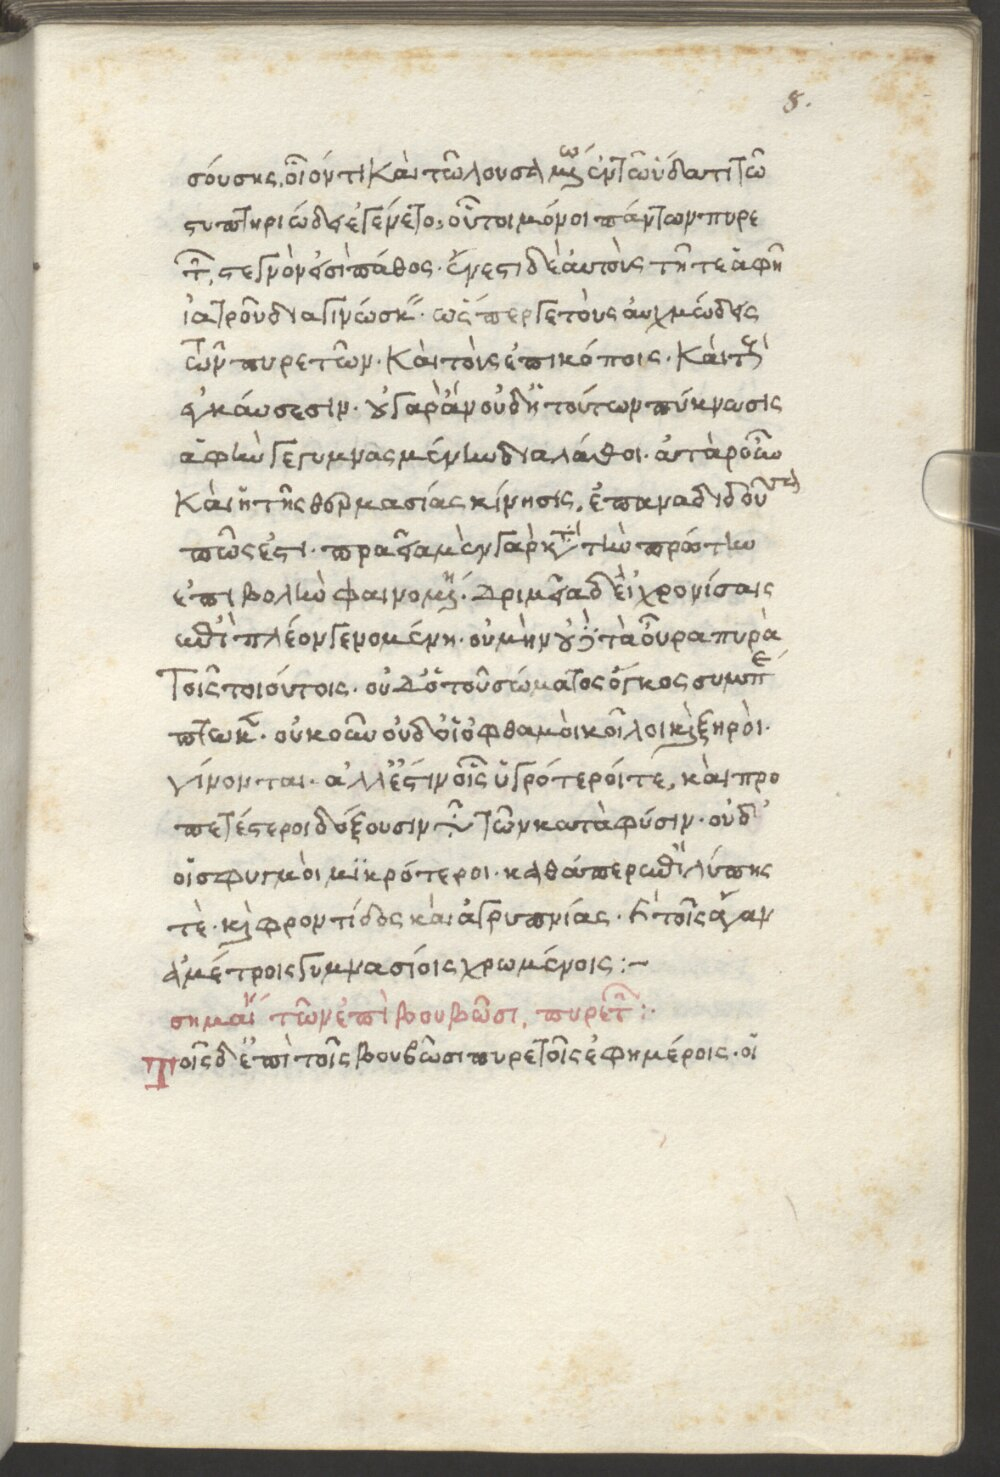 8.
σούσης, οἷόν τι καὶ τῶ λουσαμένω ἐν τῶ ὕδατι τῶ
στυπτηριώδει ἐγένετο, οὗτοι μόνοι πάντων πυρε
τῶν, στεγνόν ἐστι πάθος. ἔνεστι δὲ αὐτοὺς τῆ τε ἁφῆ
ἰατροῦ διαγινώσκειν. ὥσπερ γε τοὺς αὐχμώδεις
τῶν πυρετῶν. καὶ τοὺς ἐπικόποις. καὶ ταῖς
ἐγκαύσεσιν. οὐ γὰρ ἂν οὐδ' ἡ τούτων πύκνωσις
ἁφὴν γεγυμνασμένην διαλάθοι. ἀτὰρ οὖν
καὶ ἡ τῆς θερμασίας κίνησις, ἐπαναδιδοῦσα
πῶς ἐστι. πραεῖα μὲν γὰρ κατὰ τὴν πρώτην
ἐπιβολὴν φαινομένη. δριμεῖα δ' εἰ χρονίσαις
ἐπὶ πλέον γενομένη. οὐ μὴν οὐδὲ τὰ οὖρα πυρὰ
τοῖς τοιούτοις. οὐδ' ὁ τοῦ σώματος ὄγκος συμπε
πτωκώς. οὐκοῦν οὐδ' οἱ ὀφθαμοὶ κοῖλοι καὶ ξηροὶ.
γίνονται. ἀλλ' ἔστιν οἷς ὑγρότεροί τε, καὶ προ
πετέστεροι δόξουσιν εἶναι τῶν κατὰ φύσιν. οὐδ'
οἱ σφυγμοὶ μικρότεροι. καθάπερ ἐπὶ λύπης
τὲ. καὶ φροντίδος καὶ ἀγρυπνίας. καὶ τοῖς ἄγαν
ἀμέτροις γυμνασίοις χρωμένοις :–
σημεῖα τῶν ἐπὶ βουβῶσι, πυρετῶν :·
Τοῖς δ' ἐπὶ τοῖς βουβῶσι πυρετοῖς ἐφημέροις. οἱ